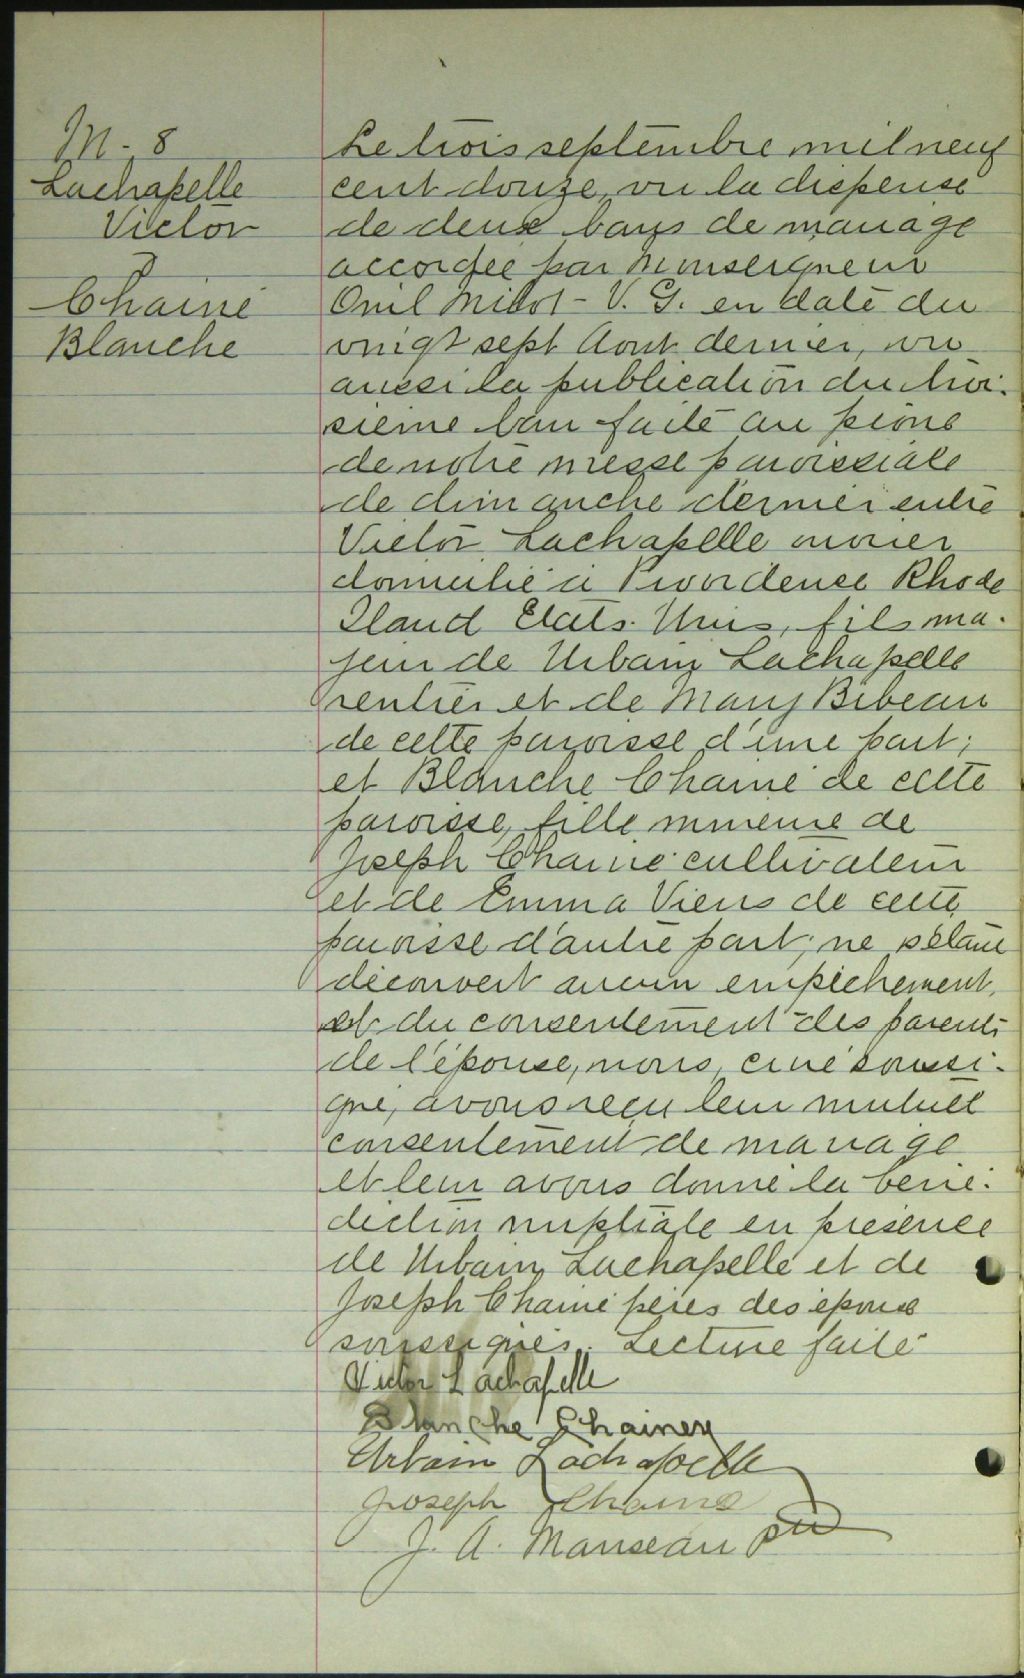 M - 8
Lachapelle
Victor
&
Chainé
Blanche
Le trois septembre mil neuf
cent douze, vu la dispense
de deux bans de mariage
accordée par Monseigneur
Onil Milot - V. G. en date du
vingt sept Aout dernier, vu
aussi la publication du troi-
sième ban faite au prône
de notre messe paroissiale
de dimanche dernier entre
Victor Lachapelle ouvrier
domicilié à Providence Rhode
Iland Etats-Unis, fils ma-
jeur de Urbain Lachapelle
rentier et de Mary Bibeau
de cette paroisse d'une part;
et Blanche Chainé de cette
paroisse, fille mineure de
Joseph Chainé cultivateur
et de Emma Viens de cette
paroisse d'autre part; ne s'étant
découvert aucun empêchement,
et du consentement des parents
de l'épouse, nous, curé soussi-
gné, avons reçu leur mutuel
consentement de mariage
et leur avons donné la béné-
diction nuptiale en présence
de Urbain Lachapelle et de
Joseph Chainé pères des époux
soussignés. Lecture faite
Victor Lachapelle
Blanche Chainey
Urbain Lachapelle
Joseph Chaine
J. A. Manseau ptre